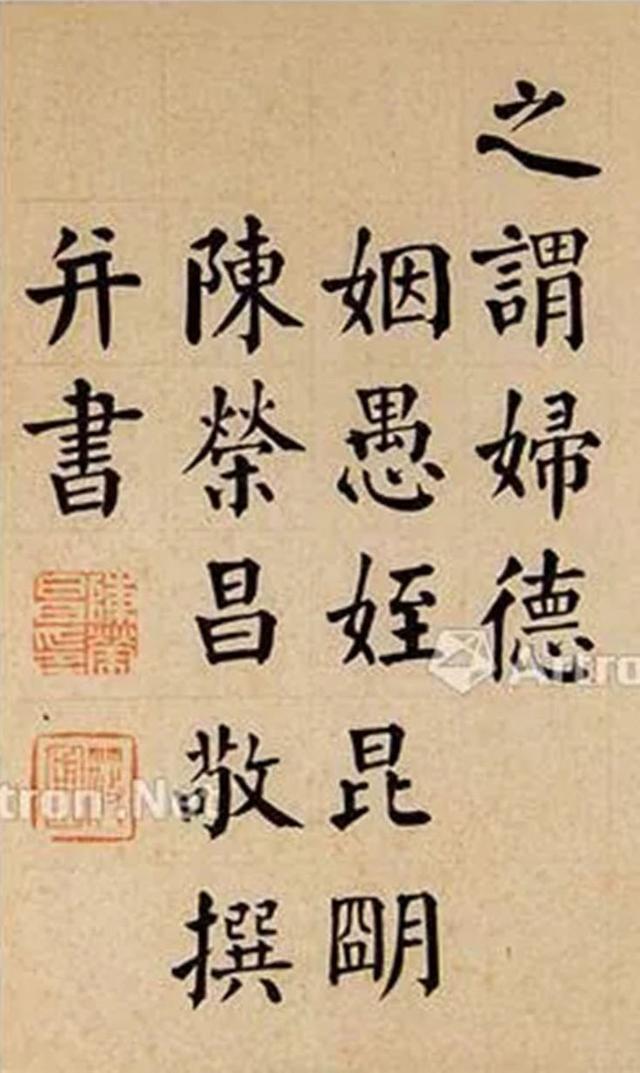 之謂婦德
姻愚姪昆朙
陳榮昌敬撰
并書
陳榮昌印
Artron
Artron.Net